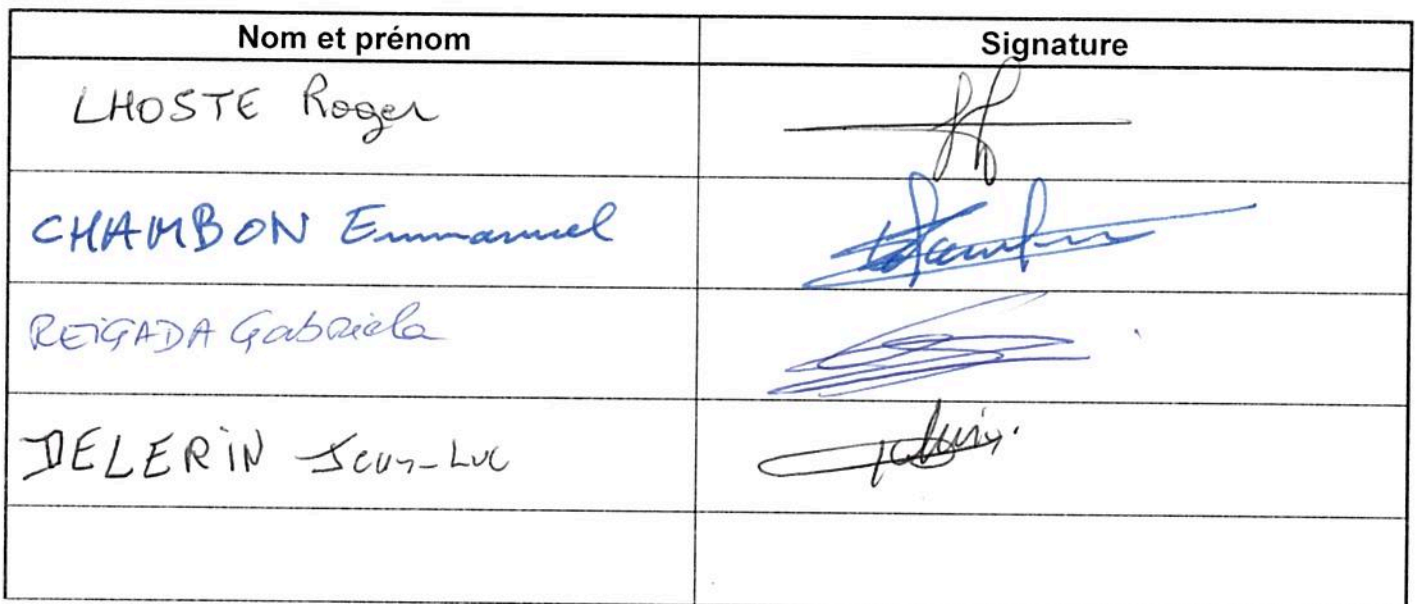 Nom et prénom Signature
LHOSTE Roger
CHAMBON Emmanuel
REIGADA Gabriela
DELERIN Jean-Luc